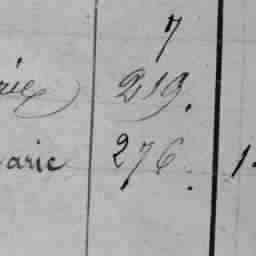 7
rie 219.
arie 276. 1.